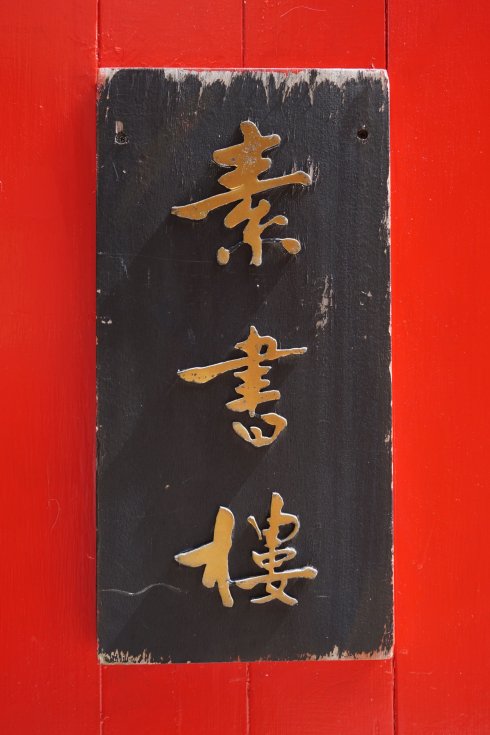 素書樓